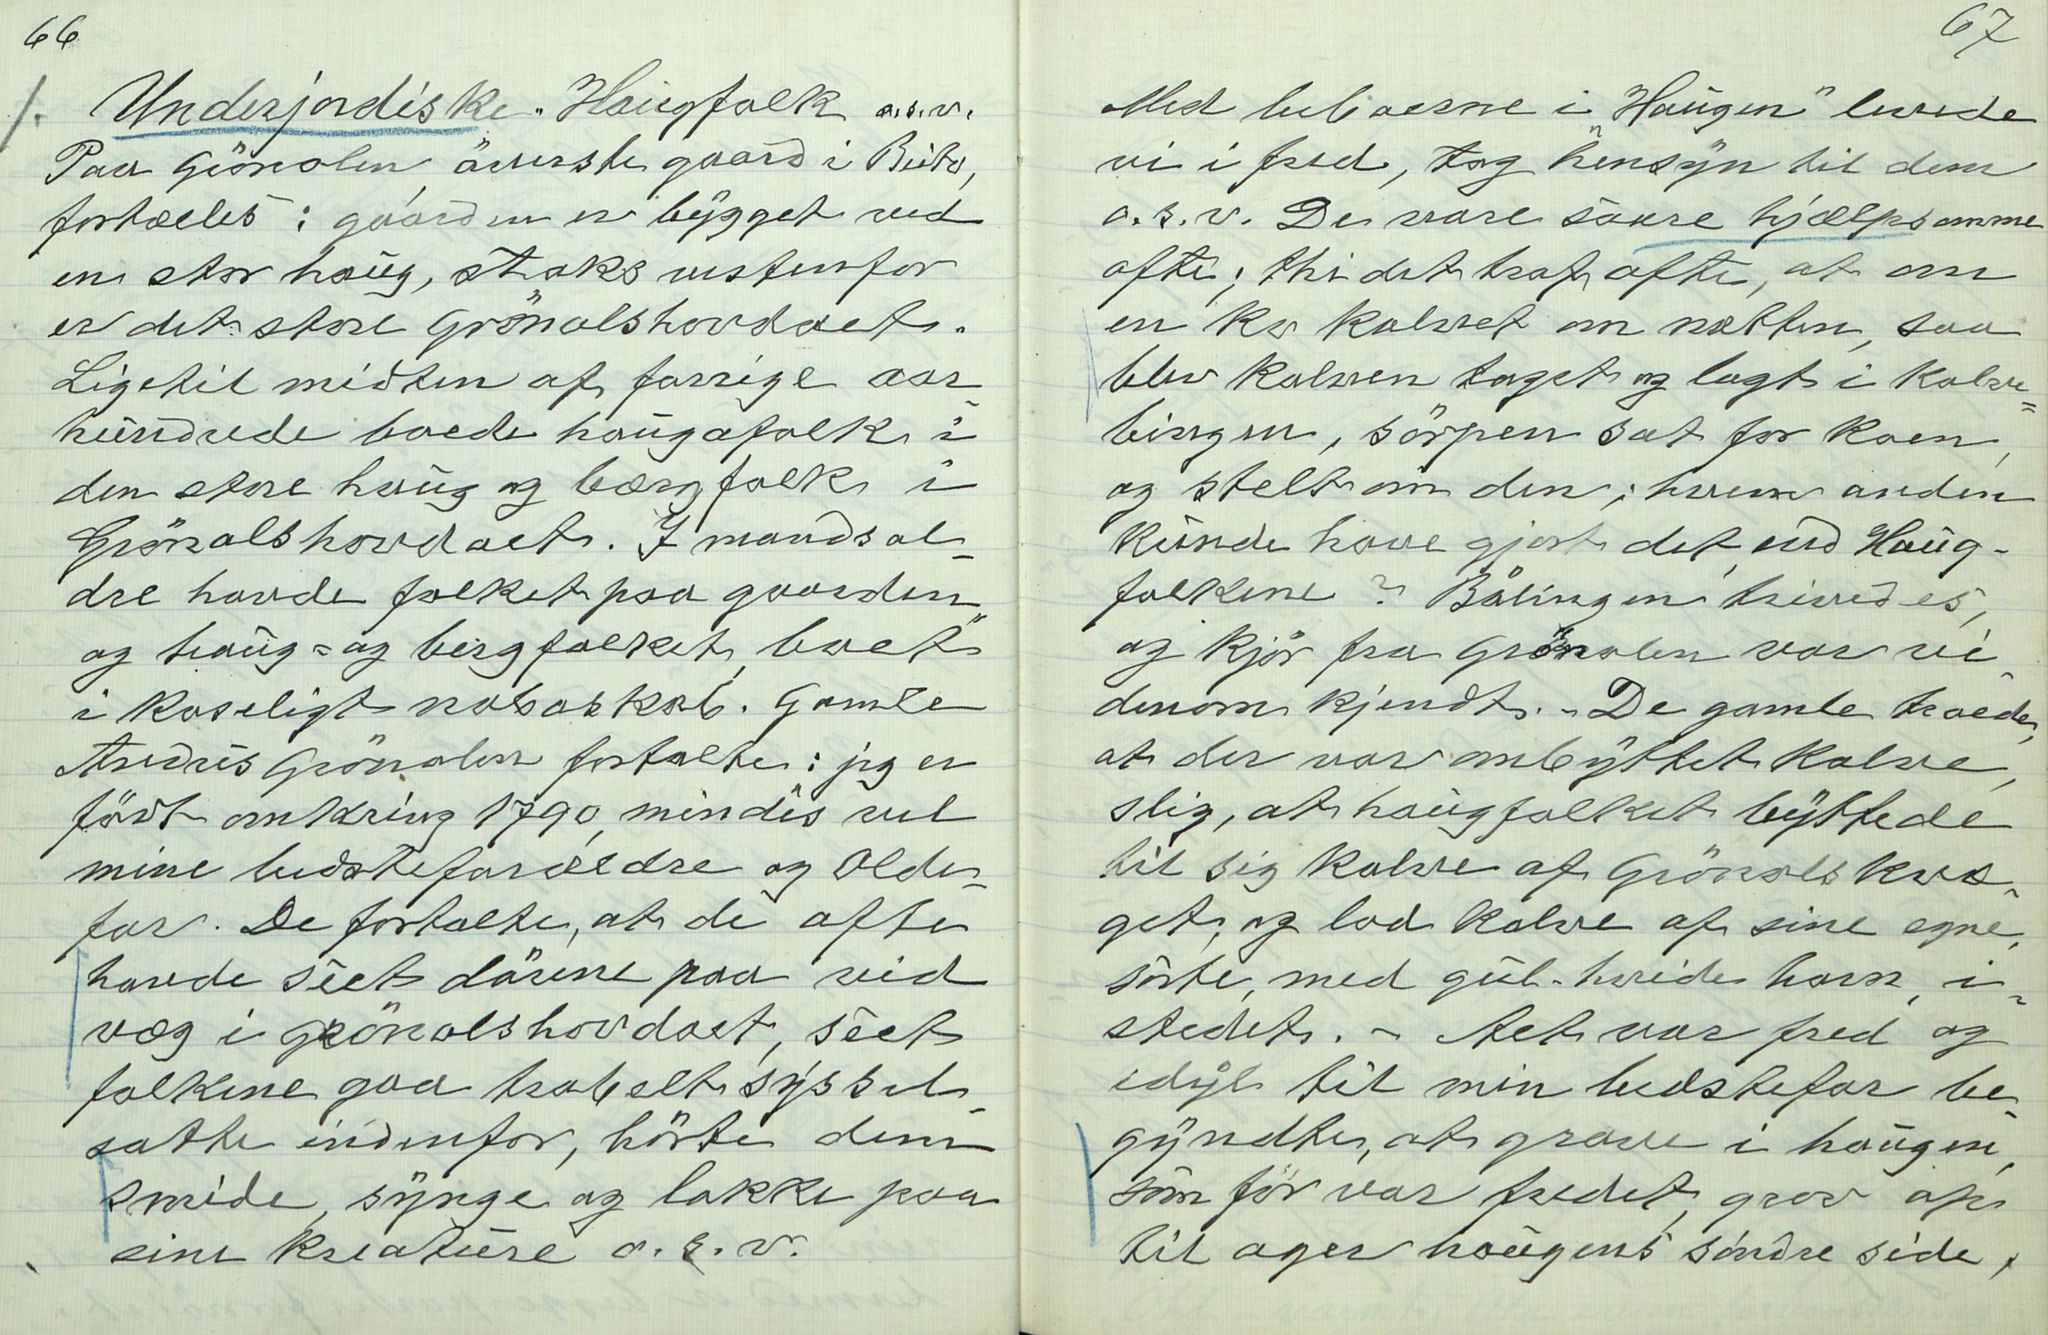 66
1. Underjordiske. Haugfolk o.s.v.
Paa Grönolen, överste gaard i Beito,
fortælles: gaarden er bygget ved
en stor haug, straks vestenfor
er det store Grönolshovdaet.
Ligetil midten af forrige aar-
hundrede boede haugafolk i
den store haug og bærgfolk i
Grönolshovdaet. I mandsal-
dre havde folket paa gaarden
og haug- og bergfolket boet
i koseligt naboskab. Gamle
Andris Grönolen fortalte: jeg er
födt omkring 1790, mindes vel
mine bedsteforældre og Olde-
far. De fortalte, at de ofte
havde seet dörene paa vid
væg i Grönolshovdaet, seet
folkene gaa travelt syssel-
satte indenfor, hörte dem
smide, synge og lokke paa
sine kreature o.s.v.
67
Med beboerne i "Haugen" levede
vi i fred, tog hensyn til dem
o.s.v. De vare saare hjælpsomme
ofte; thi det traf ofte, at om
en ko kalvet om natten, saa
blev kalven taget og lagt i kalve-
bingen, sörpen sat for koen,
og stelt om den; hvem anden
kunde have gjort det end Haug-
folkene? Bölingen trivedes,
og kjör fra Grönolen var vi
denom kjendt. - De gamle troede,
at der var ombyttet kalve,
slig, at haugfolket byttede
til sig kalve af Grönolskvæ-
get, og lod kalve af sine egne,
sorte, med gul-hvide horn, i-
stedet. - Aet var fred og
idyl til min bedstefar be-
gyndte, at grave i haugen,
som för var fredet, grov op
til ager haugens söndre side,